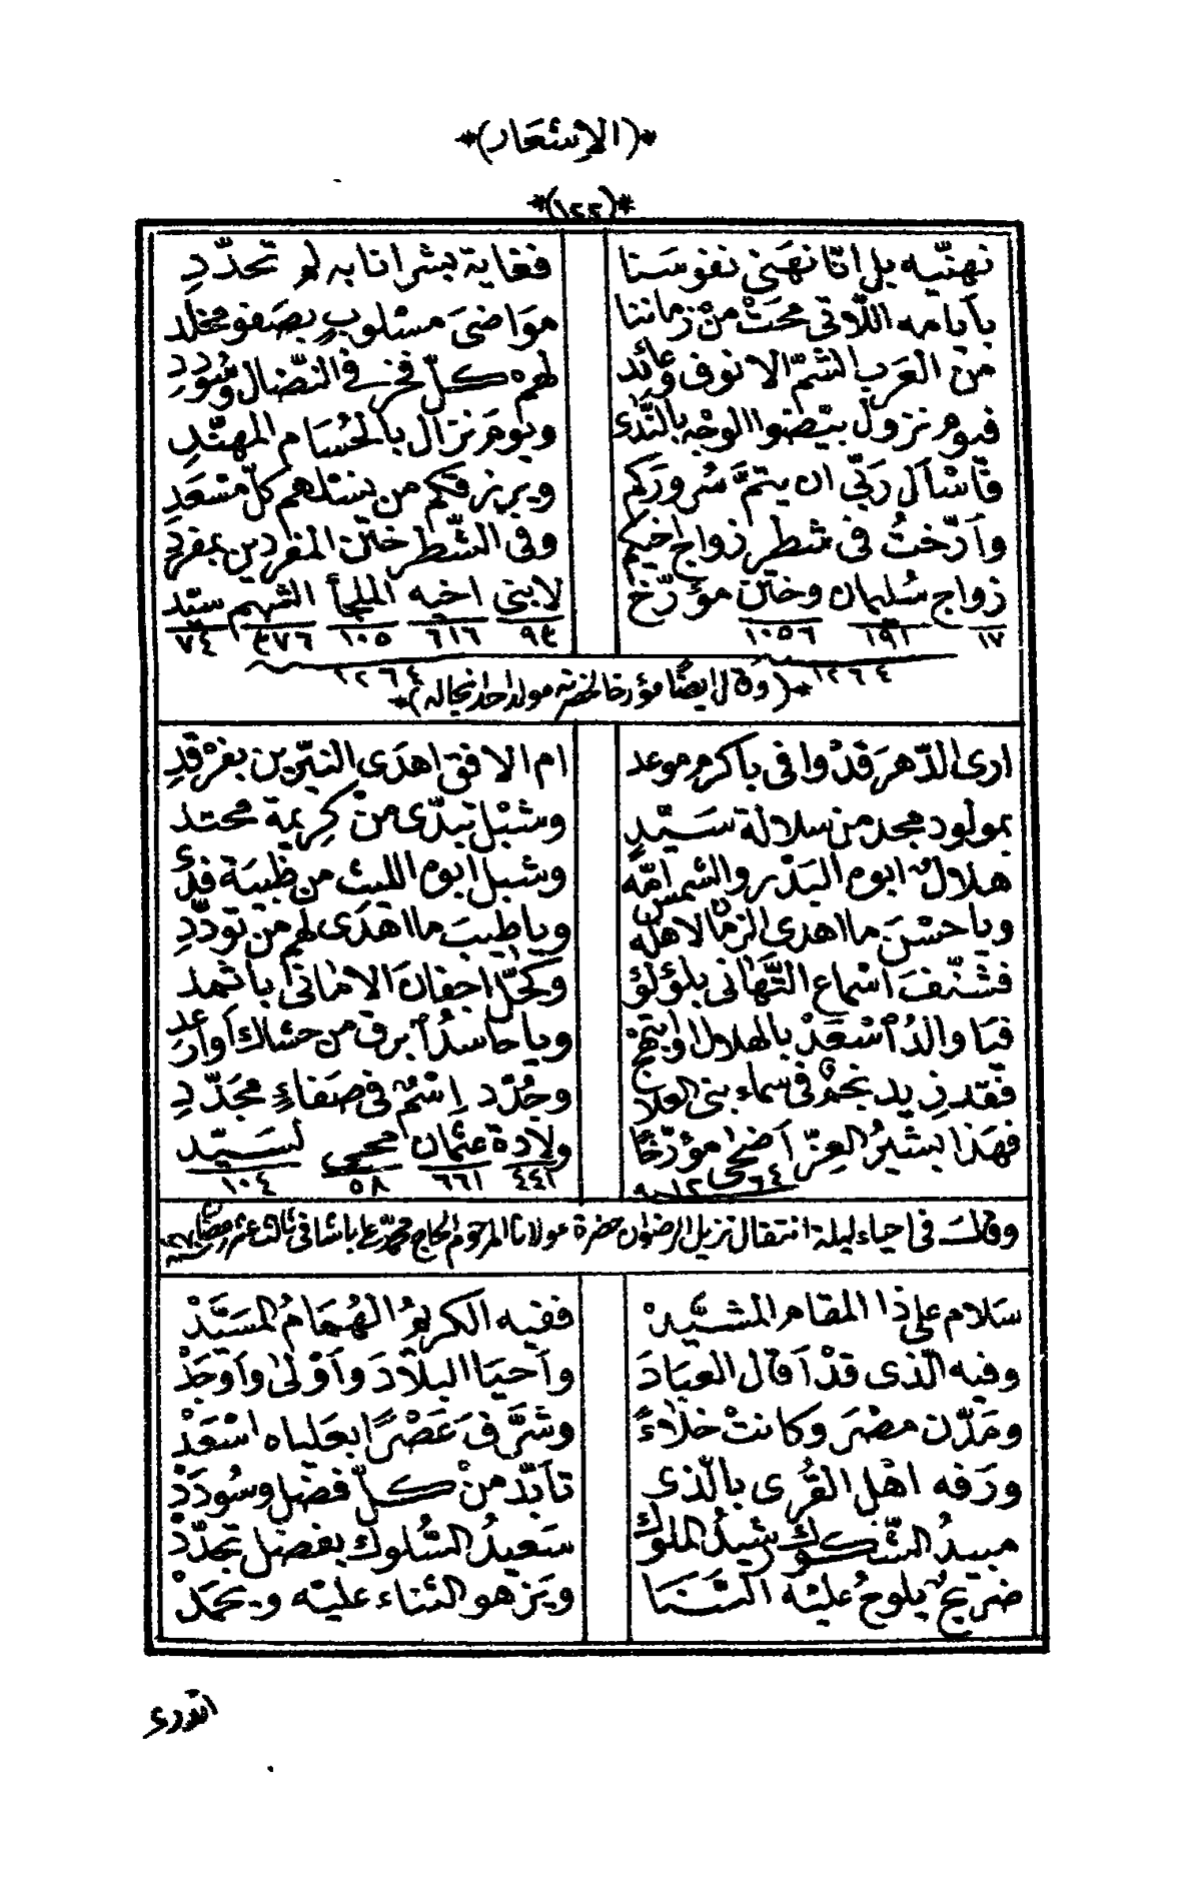 *(الإشعار)*
*(١٢٢)*
نهنّيه بل انّا نهَني نفوسَنا فغاية بشرانا به لم تحدّدِ
بأيامه اللّاتي محَتْ منْ زماننا مَواضىَ مسْلوبٍ بصَفو مخلد
من العَربِ الشمّ الانوف وعائد لهم كلّ فخر في النّضال وسُودَدِ
فيوم نزول بيّضوا الوجْه بالنَّداء ويوم نزال بالحُسَام المهنّدِ
فأسْأل رَبّي ان يتمَّ سُرورَكم ويرزقكم من نسْلهم كلّ مسْعَدِ
وأرّختُ في شطر زواج اخيكم وفي الشّطر ختْن المفردين بمفردِ
زواج سُليمان وختْن مؤرّخ لابني اخيه الملجأ الشهم سيّد
١٧ ١٩١ ١٠٥٦ ٩٣ ٦١٦ ١٠٥ ٣٧٦ ٧٤
١٢٦٤ ١٢٦٤
*(وقال ايضًا مؤرخا لحضرته مولد احد انجاله)*
ارى الدّهرَ قدْ وافى باكرم موعد ام الافق اهدَى النيّرين بفرْقدِ
بمولود مجد من سلالة سَيّدٍ وشبْل تبدّى منْ كريمة محتد
هلالٌ ابوه البدْر والشمسُ امّه وشبل ابوه الليث من ظبية فدْفدِ
وياحسْنَ ما اهدى الزمان لاهله وياطيبَ ما اهدَى لهم منْ تودّدِ
فشنّفَ اسْماع التَّهاني بلؤلؤ وكحّل اجفانَ الاماني باثمد
فيَا والدُ اسْعَدْ بالهلال وابتهجْ وياحاسدُ ابرق من حشاك او ارعد
فقد زيد نجمٌ في سماء بني العلا وجُدّد إسْمٌ في صَفاءٍ مجَدّدِ
فهَذا بشيرُ العزّ اَضحى مؤرّخًا ولادة عثمان محيي لسَيّد
١٢٦٤ ٤٤١ ٦٦١ ٥٨ ١٠٤
وقلت في احياء ليلة انتقال نزيل الرضوان حضرة مولانا المرحوم الحاج محمّد على باشا في ثالث عشر رمضان
سَلام على ذا المقام المشيّدْ ففيه الكريمُ الهُمَامُ المسَيَّدْ
وفيه الّذى قدْ اَقال العبَادَ وأحيَا البلادَ وأوْلى وأوجَدْ
ومَدّن مصْرَ وكانتْ خلاءً وشرَّفَ عَصْرًا بعَلياه اسْعَدْ
ورَفه اهْل القُرى بالّذى تأبّد منْ كلّ فضْل وسُودَدْ
مبيدُ الشّكوك رشيدُ الملوك سَعيدُ السُّلوك بفضل تجدّدْ
ضريحٌ يلوحُ عليْه السَّنَا ويَزهو الثناء عليْه ويحمَدْ